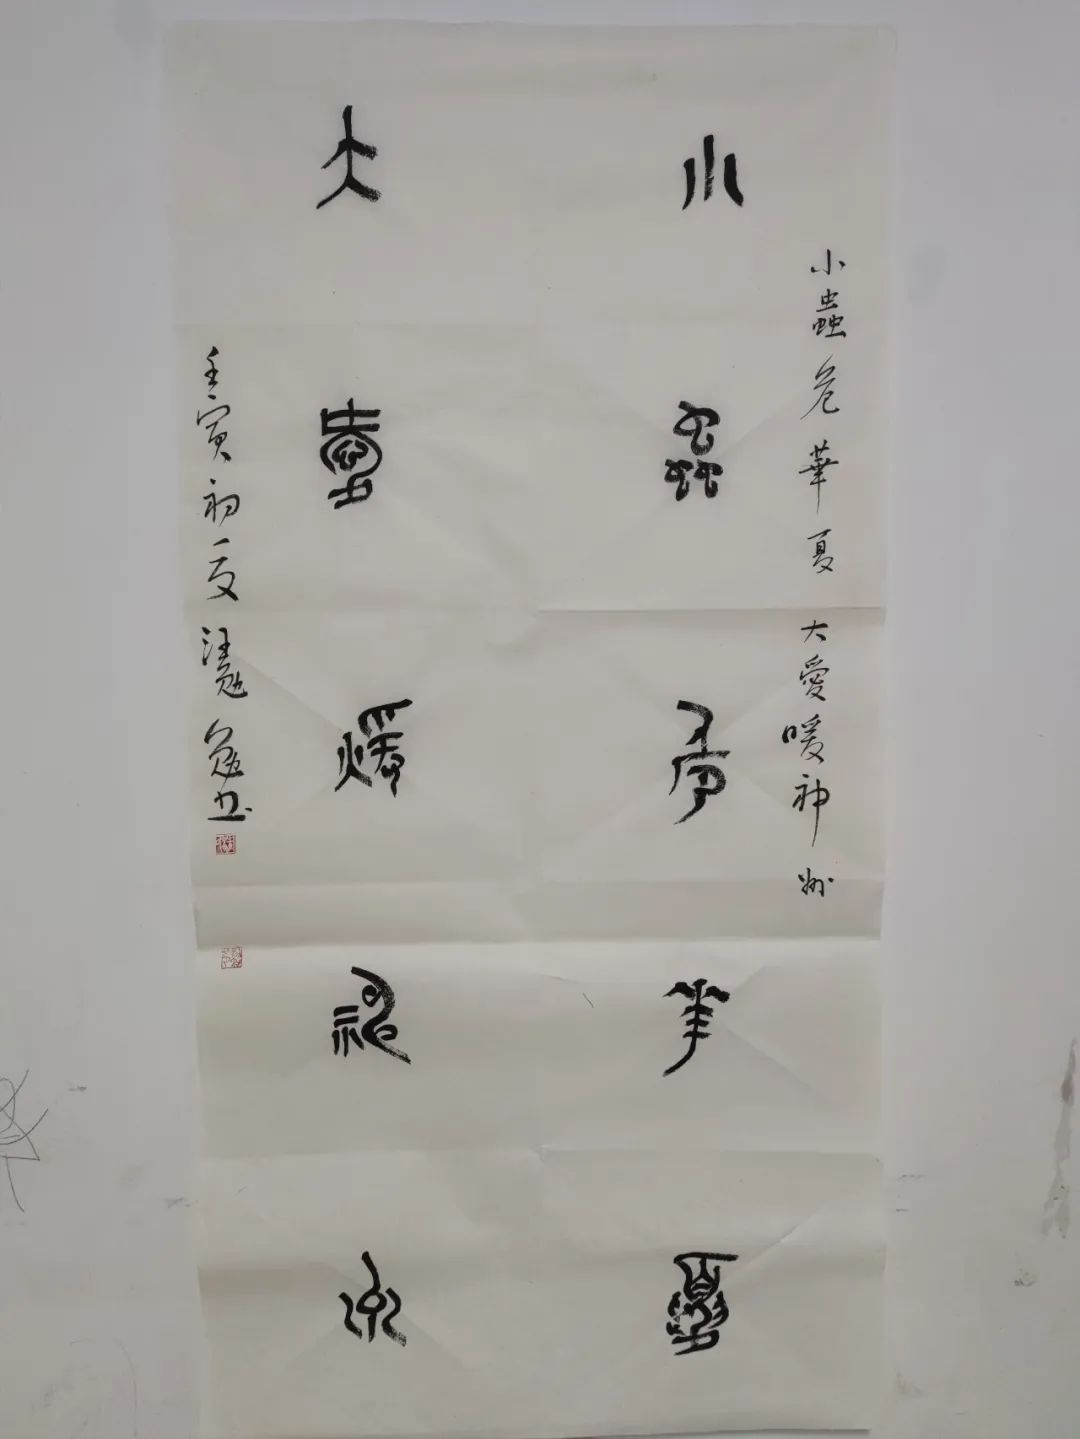 小蟲危華夏
小蟲危華夏 大愛暖神州
大愛暖神州
壬寅初夏汪
書